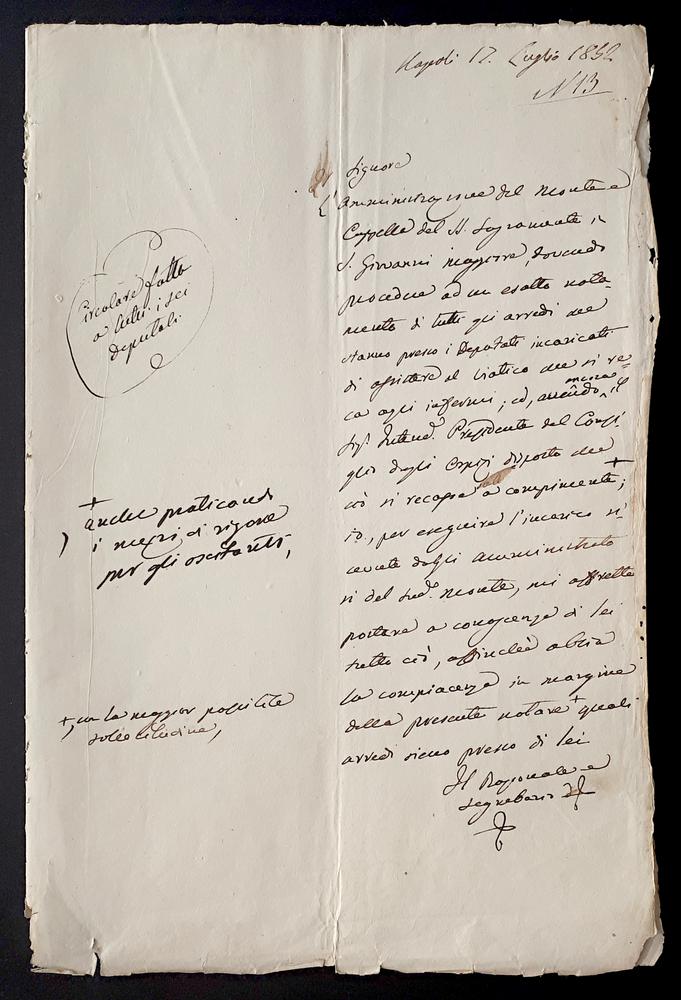 Napoli 17. Luglio 1852
N 13
Signore
L'Amministrazione del Monte e
Cappella del SS. Sagramento in
S. Giovanni maggiore, dovendo
procedere ad un esatto nota-
mento di tutti gli arredi che
stanno presso i Deputati incaricati
di assistere il Viatico che si re-
ca agli infermi; ed, avendo ancora il
Sig. Intend. Presidente del Consi-
glio degli Ospizi disposto che
ciò si recasse a compimento +;
io, per eseguire l'incarico ri-
cevuto dagli Amministrato
ri del sud. Monte, mi affretto
portare a conoscenza di lei
tutto ciò, affinchè abbia
la compiacenza in margine
della presente notare + quali
arredi sieno presso di lei
Il Razionale e
Segretario
Circolare fatta
a tutti i sei
deputati
+
anche praticando
i mezzi di rigore
per gli esitanti,
+, con la maggior possibile
sollecitudine,